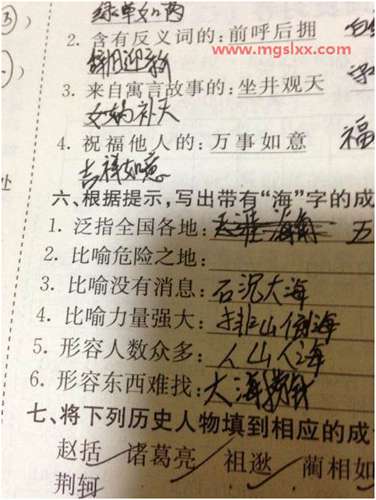 www.mgslxx.com
2. 含有反义词的:前呼后拥
辞旧迎新
3. 来自寓言故事的:坐井观天
女娲补天
4. 祝福他人的:万事如意 福
吉祥如意
处
六、根据提示,写出带有“海”字的成
1. 泛指全国各地:天涯海角 五
2. 比喻危险之地:
3. 比喻没有消息:石沉大海
4. 比喻力量强大:排山倒海
5. 形容人数众多:人山人海
6. 形容东西难找:大海捞针
七、将下列历史人物填到相应的成
赵括 诸葛亮 祖逖 蔺相如
荆轲